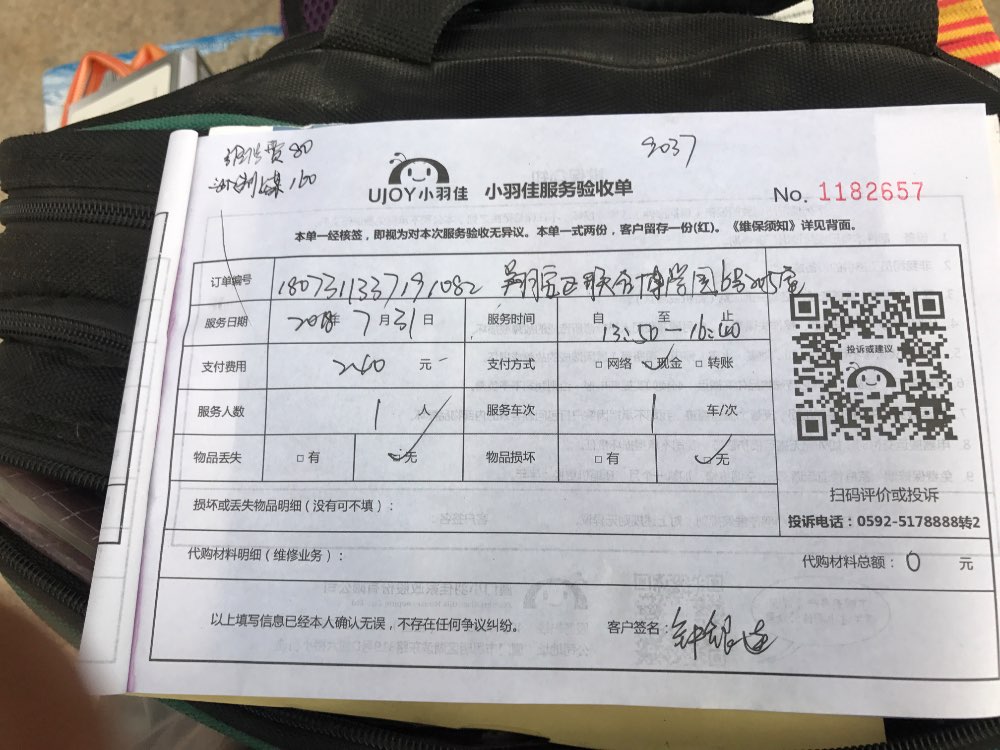 费80
160
9037
UJOY小羽佳 小羽佳服务验收单
No. 1182657
本单一经核签，即视为对本次服务验收无异议。本单一式两份，客户留存一份(红)。《维保须知》详见背面。
订单编号 1807311337191082
服务日期 2018年 7月31日 服务时间 自 至 止
13:50—16:00
支付费用 260 元 支付方式 □网络 ☑现金 □转账
服务人数 1 人 服务车次 1 车/次
物品丢失 □有 ☑无 物品损坏 □有 ☑无
投诉或建议
扫码评价或投诉
投诉电话：0592-5178888转2
损坏或丢失物品明细（没有可不填）：
代购材料明细（维修业务）： 代购材料总额： 0 元
以上填写信息已经本人确认无误，不存在任何争议纠纷。 客户签名：钟银连